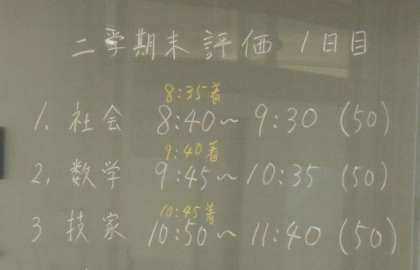 二学期末 評価 1日目
8:35着
1. 社会 8:40～9:30 (50)
9:40着
2. 数学 9:45～10:35 (50)
10:45着
3 技家 10:50～11:40 (50)